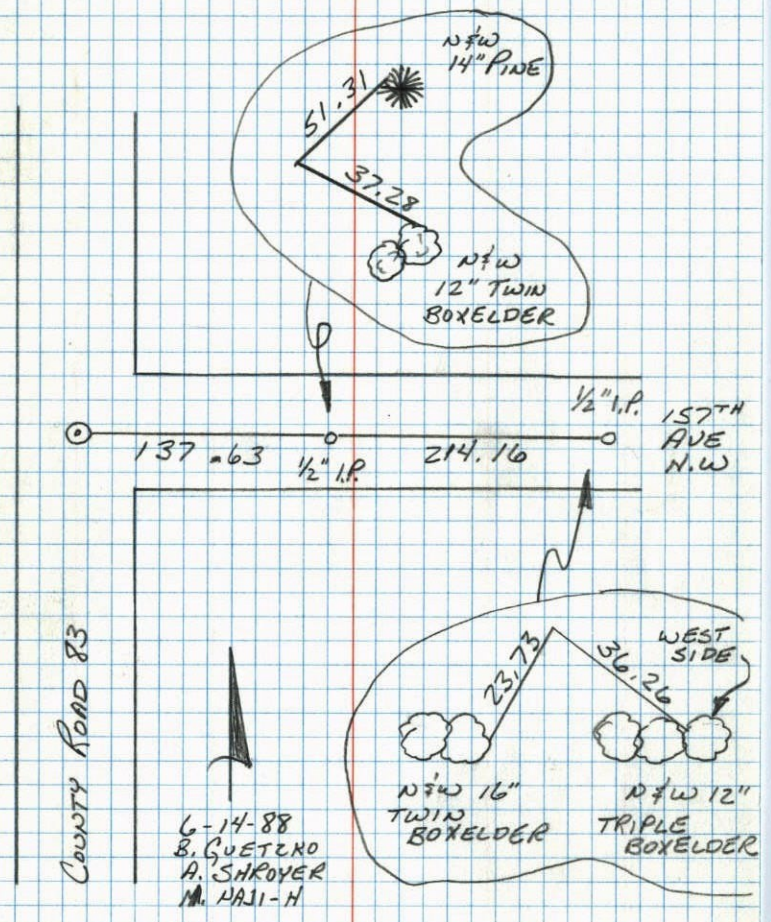 N & W
14" PINE
51.31
37.28
N & W
12" TWIN
BOXELDER
1/2" I.P.
157TH
AVE
N.W
137.63
1/2" I.P.
214.16
COUNTY ROAD 83
WEST
SIDE
23.73
36.26
N & W 16"
TWIN
BOXELDER
N & W 12"
TRIPLE
BOXELDER
6-14-88
B. GUETZKO
A. SHROYER
M. NAJI-H